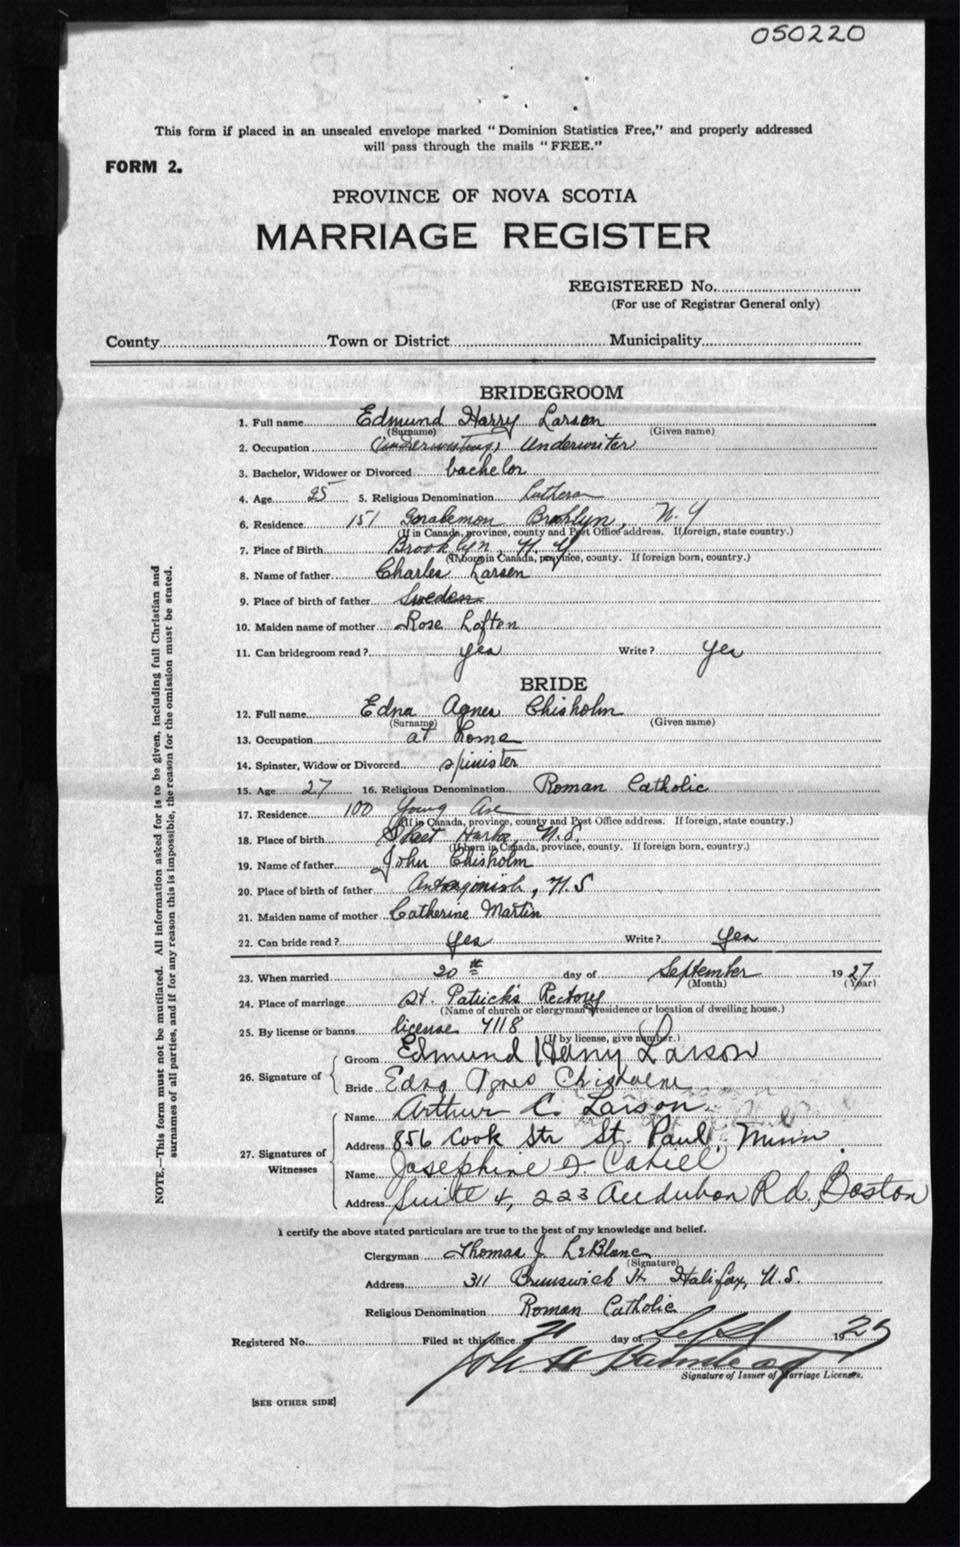 050220
This form if placed in an unsealed envelope marked "Dominion Statistics Free," and properly addressed
will pass through the mails "FREE."
FORM 2.
PROVINCE OF NOVA SCOTIA
MARRIAGE REGISTER
REGISTERED No.
(For use of Registrar General only)
County Town or District Municipality
BRIDEGROOM
1. Full name Edmund Harry Larson
(Surname) (Given name)
2. Occupation Underwriter
3. Bachelor, Widower or Divorced bachelor
4. Age 25 5. Religious Denomination Lutheran
6. Residence 151 Brooklyn, N.Y
(If in Canada, province, county and Post Office address. If foreign, state country.)
7. Place of Birth Brooklyn, N.Y
(If born in Canada, province, county. If foreign born, country.)
8. Name of father Charles Larsen
9. Place of birth of father Sweden
10. Maiden name of mother Rose Loften
11. Can bridegroom read? yes Write? yes
BRIDE
12. Full name Edna Agnes Chisholm
(Surname) (Given name)
13. Occupation at home
14. Spinster, Widow or Divorced spinister
15. Age 27 16. Religious Denomination Roman Catholic
17. Residence 100 Young Ave
(If in Canada, province, county and Post Office address. If foreign, state country.)
18. Place of birth N.S.
(If born in Canada, province, county. If foreign born, country.)
19. Name of father John Chisholm
20. Place of birth of father Antagonish, N.S
21. Maiden name of mother Catherine Martin
22. Can bride read? yes Write? yes
23. When married 20th day of September 1927
(Month) (Year)
24. Place of marriage St. Patrick's Rectory
(Name of church or clergyman's residence or location of dwelling house.)
25. By license or banns license 4118
(If by license, give number.)
26. Signature of
Groom Edmund Harry Larson
Bride Edna Agnes Chisholm
27. Signatures of Witnesses
Name Arthur C. Larson
Address 856 Cook Str St. Paul, Minn.
Name Josephine J Cahill
Address Suite 4, 223 Audubon Rd, Boston
I certify the above stated particulars are true to the best of my knowledge and belief.
Clergyman Thomas J. LeBlanc
(Signature)
Address 311 Brunswick St Halifax, N.S.
Religious Denomination Roman Catholic
Registered No. Filed at this office day of Sept 19
Signature of Issuer of Marriage Licenses.
[SEE OTHER SIDE]
NOTE.—This form must not be mutilated. All information asked for is to be given, including full Christian and
surnames of all parties, and if for any reason this is impossible, the reason for the omission must be stated.